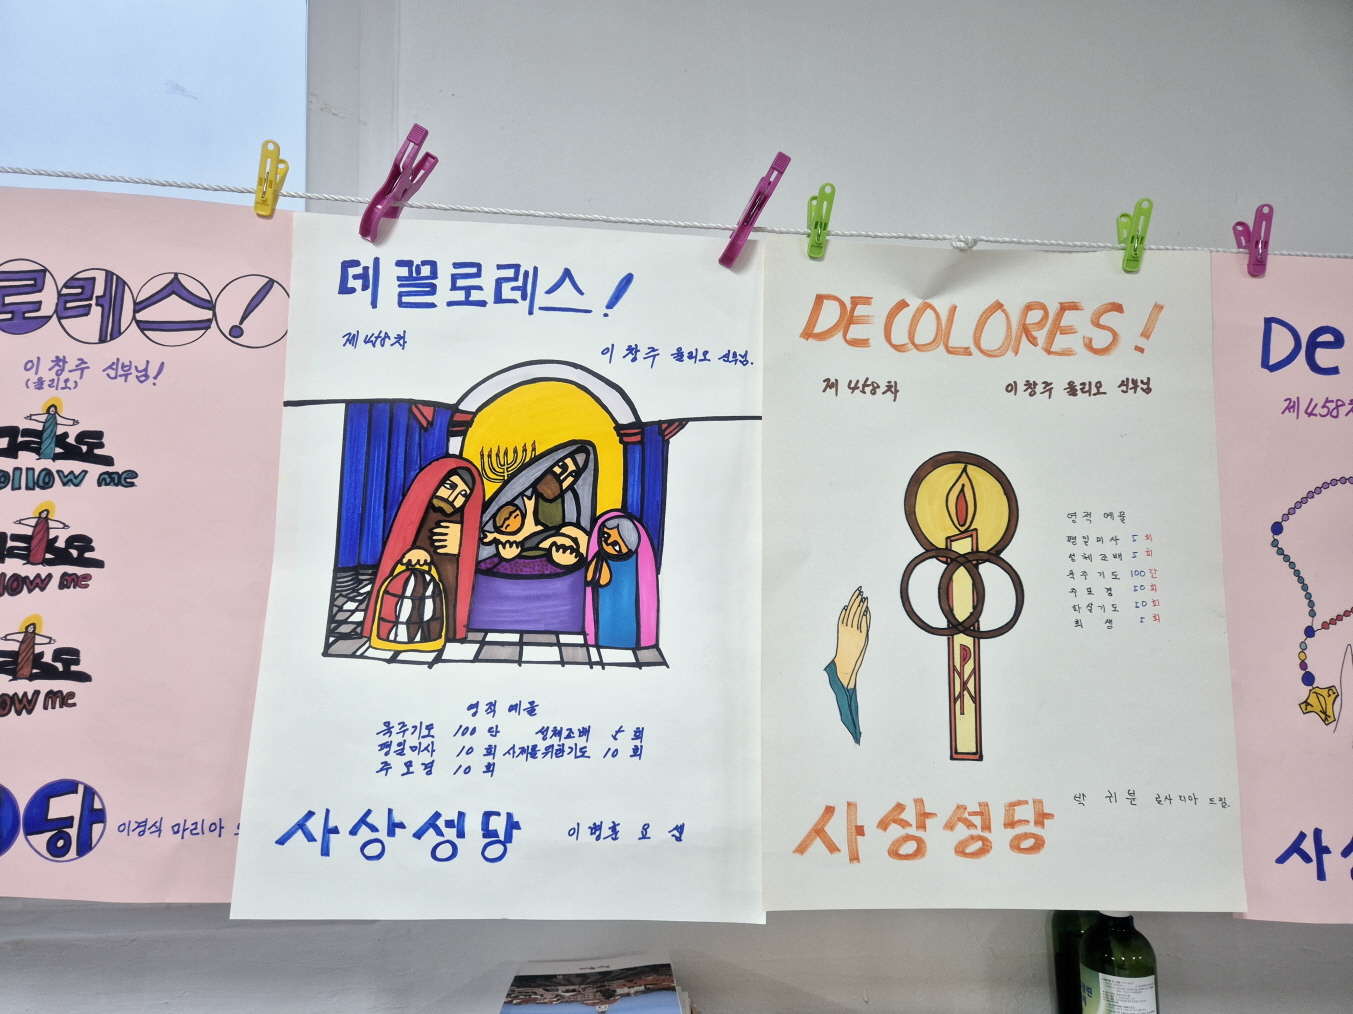 로레스!
이 창 주 신부님!
(율리오)
ollow me
low me
ow me
당
이경식 마리아
데 꼴로레스!
제 458차
이 창 주 율리오 신부님.
영적 예물
묵주기도 100 단 성체조배 5 회
평일미사 10 회 사제를위한기도 10 회
주 모 경 10 회
사상성당
이 형 훈 요 셉
DE COLORES!
제 458차
이 창 주 율리오 신부님
영적 예물
평일미사 5 회
성체조배 5 회
묵주기도 100 단
주모경 50 회
화살기도 50 회
희 생 5 회
사상성당
박 귀 분 글 사 리 아 드림.
De
제 458차
사